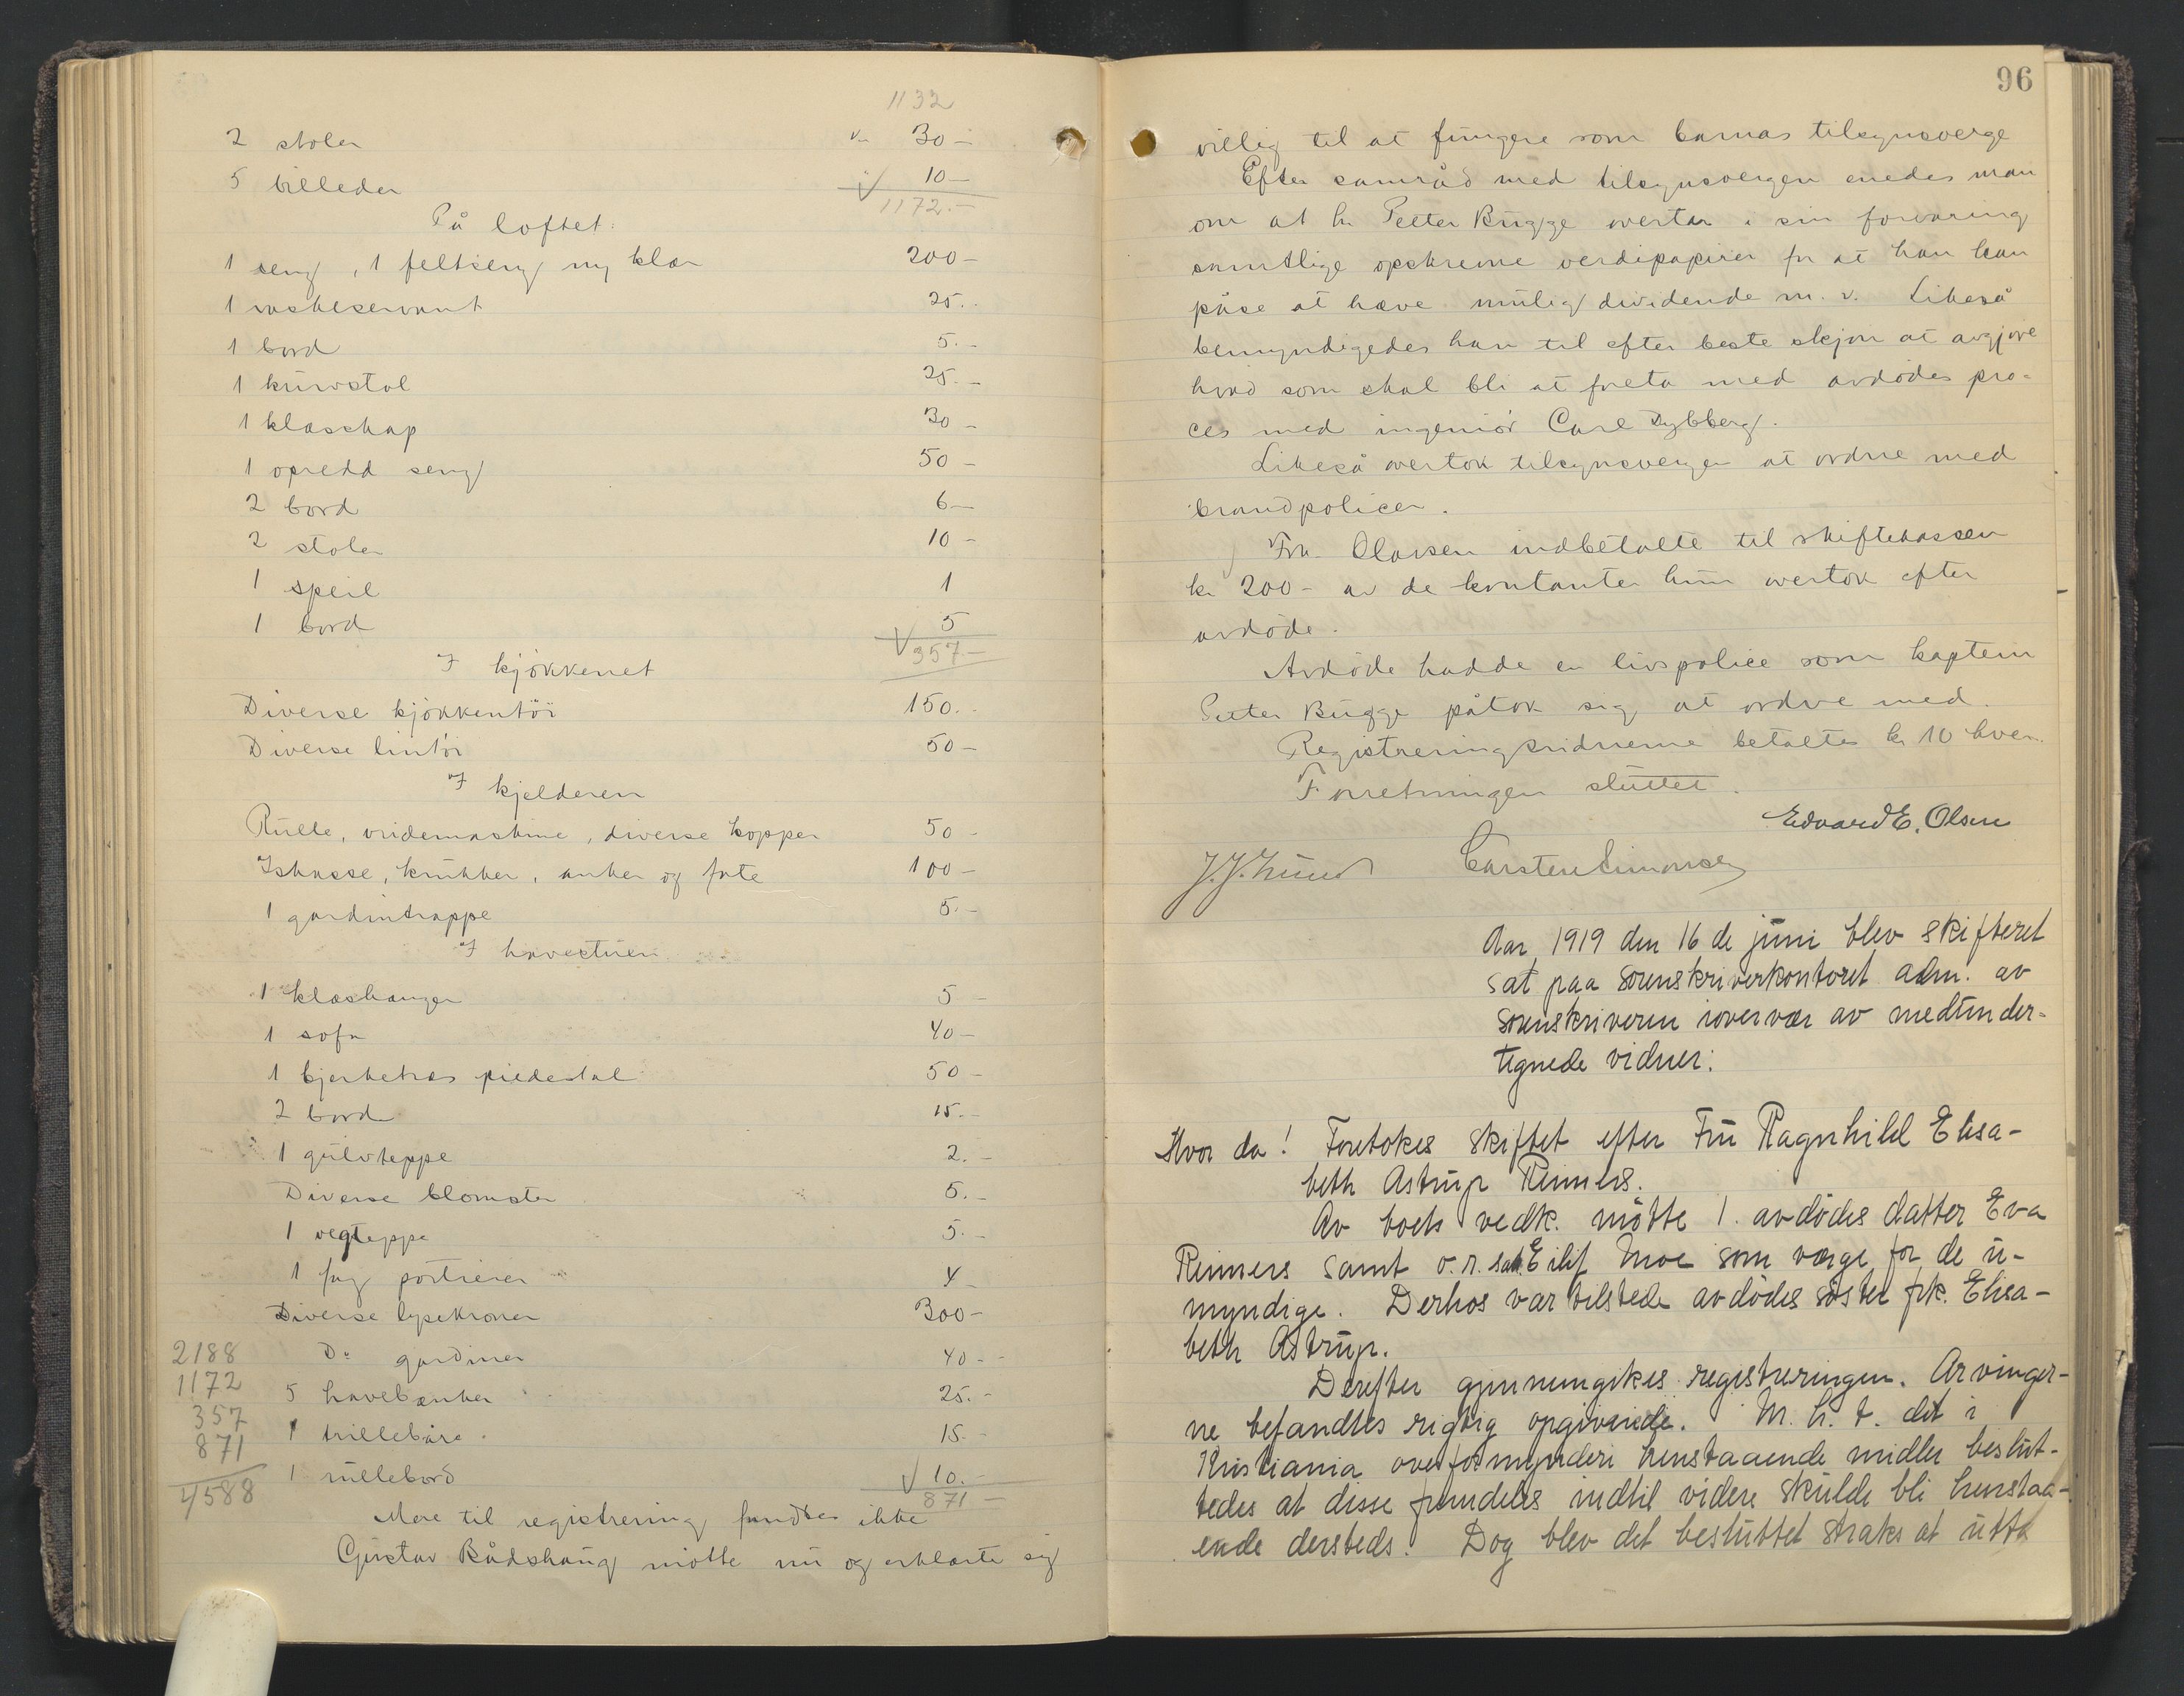 1132
2 stoler kr 30 -
5 billeder 10 -
1172.-
På loftet:
1 seng, 1 feltseng m/ klær 200 -
1 vaskeservant 25.-
1 bord 5.-
1 kurvstol 25.-
1 klæsskap 30 -
1 opredd seng 50 -
2 bord 6 -
2 stoler 10 -
1 speil 1
1 bord 5
357.-
I kjøkkenet
Diverse kjøkkentöi 150.-
Diverse lintöi 50 -
I kjelderen
Rulle, vridemaskine, diverse kopper 50 -
Iskasse, krukker, anker og fate 100 -
1 gardintrappe 5.-
I havestuen
1 klæshanger 5 -
1 sofa 40 -
1 bjerketræs piedestal 50 -
2 bord 15.-
1 gulvteppe 2.-
Diverse blomster 5.-
1 vegteppe 5.-
1 fag portierer 4 -
Diverse lysekroner 300 -
Do gardiner 40 -
5 havebænker 25.-
1 trillebåre 15.-
1 rullebord 10.-
871 -
2188
1172
357
871
4588
Mere til registrering fandtes ikke
Gustav Bådshaug møtte nu og erklærte sig
96
villig til at fungere som barnas tilsynsverge
Efter samråd med tilsynsvergen enedes man
om at hr Peeter Bugge overtar i sin forvaring
samtlige opskrevne verdipapirer for at han kan
påse at hæve mulig dividende m. v. Likeså
bemyndigedes han til efter beste skjön at avgjöre
hvad som skal bli at foreta med avdödes pro-
ces med ingeniör Carl Dybberg.
Likeså overtok tilsynsvergen at ordne med
brandpolicer.
Fru Olavsen indbetalte til skiftekassen
kr 200 - av de kontanter hun overtok efter
avdöde.
Avdöde hadde en livspolice som kaptein
Peeter Bugge påtok sig at ordne med.
Registreringsvidnerne betaltes kr 10 hver.
Forretningen sluttet.
Edvard E. Olsen
J. J. Lund Carsten Simonsen
Aar 1919 den 16 de juni blev skifteret
sat paa sorenskriverkontoret adm. av
sorenskriveren iovervær av medunder-
tegnede vidner:
Hvor da! Foretokes skiftet efter Fru Ragnhild Elisa-
beth Astrup Rimers.
Av boets vedk. møtte 1. avdødes datter Eva
Rimers samt o.r.sak. Eilif Moe som værge for de u-
myndige. Derhos var tilstede avdødes søster frk. Elisa-
beth Astrup.
Derefter gjennemgikes registreringen. Arvinger-
ne befandtes rigtig opgivende. M. h. t. det i
Kristiania overformynderi henstaaende midler beslut-
tedes at disse fremdeles indtil videre skulde bli henstaa-
ende dersteds. Dog blev det besluttet straks at utta